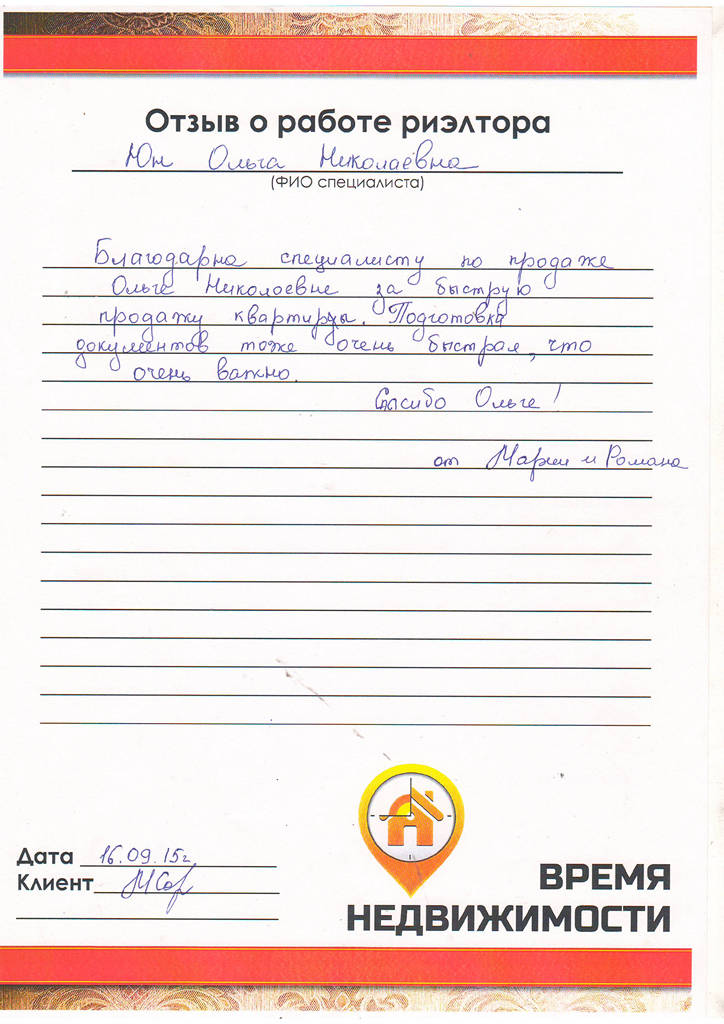 Отзыв о работе риэлтора
Юн Ольга Николаевна
(ФИО специалиста)
Благодарна специалисту по продаже
Ольге Николаевне за быструю
продажу квартиры. Подготовка
документов тоже очень быстрая, что
очень важно.
Спасибо Ольге!
от Марии и Романа
Дата 16.09.15г.
Клиент
ВРЕМЯ
НЕДВИЖИМОСТИ